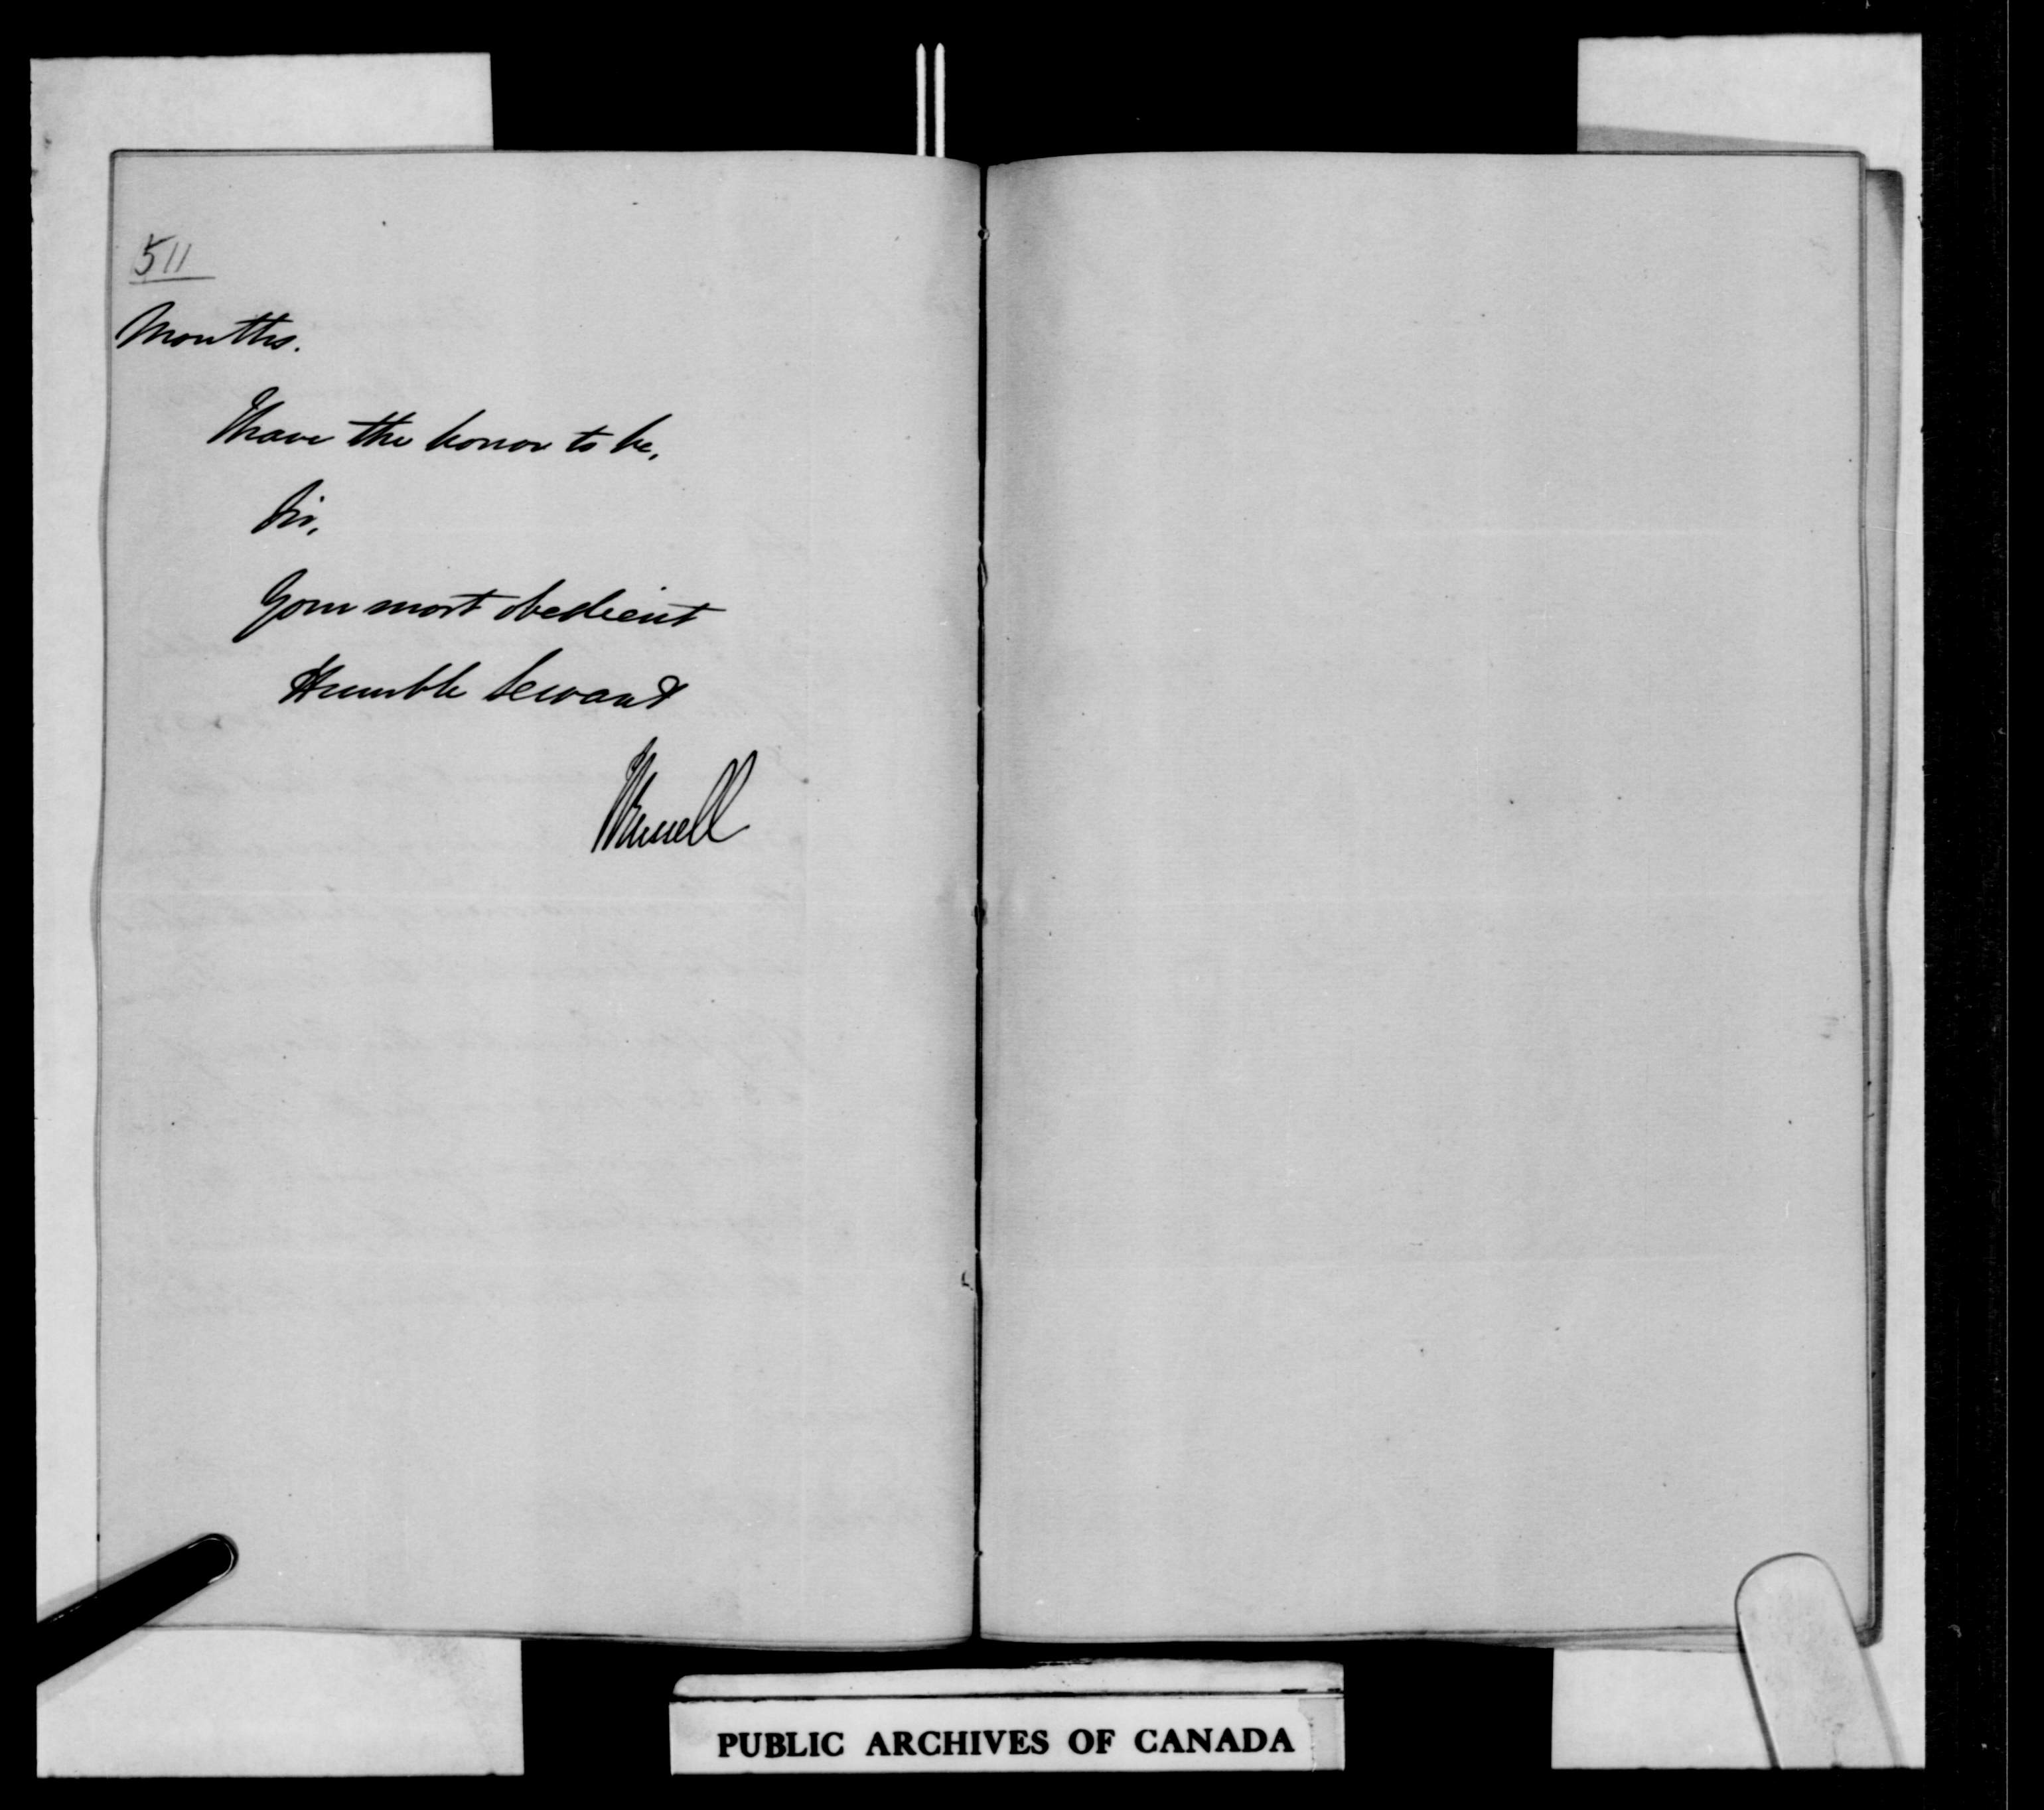 511
Months.
I have the honor to be,
Sir,
Your most obedient
Humble Servant
JRussell
PUBLIC ARCHIVES OF CANADA